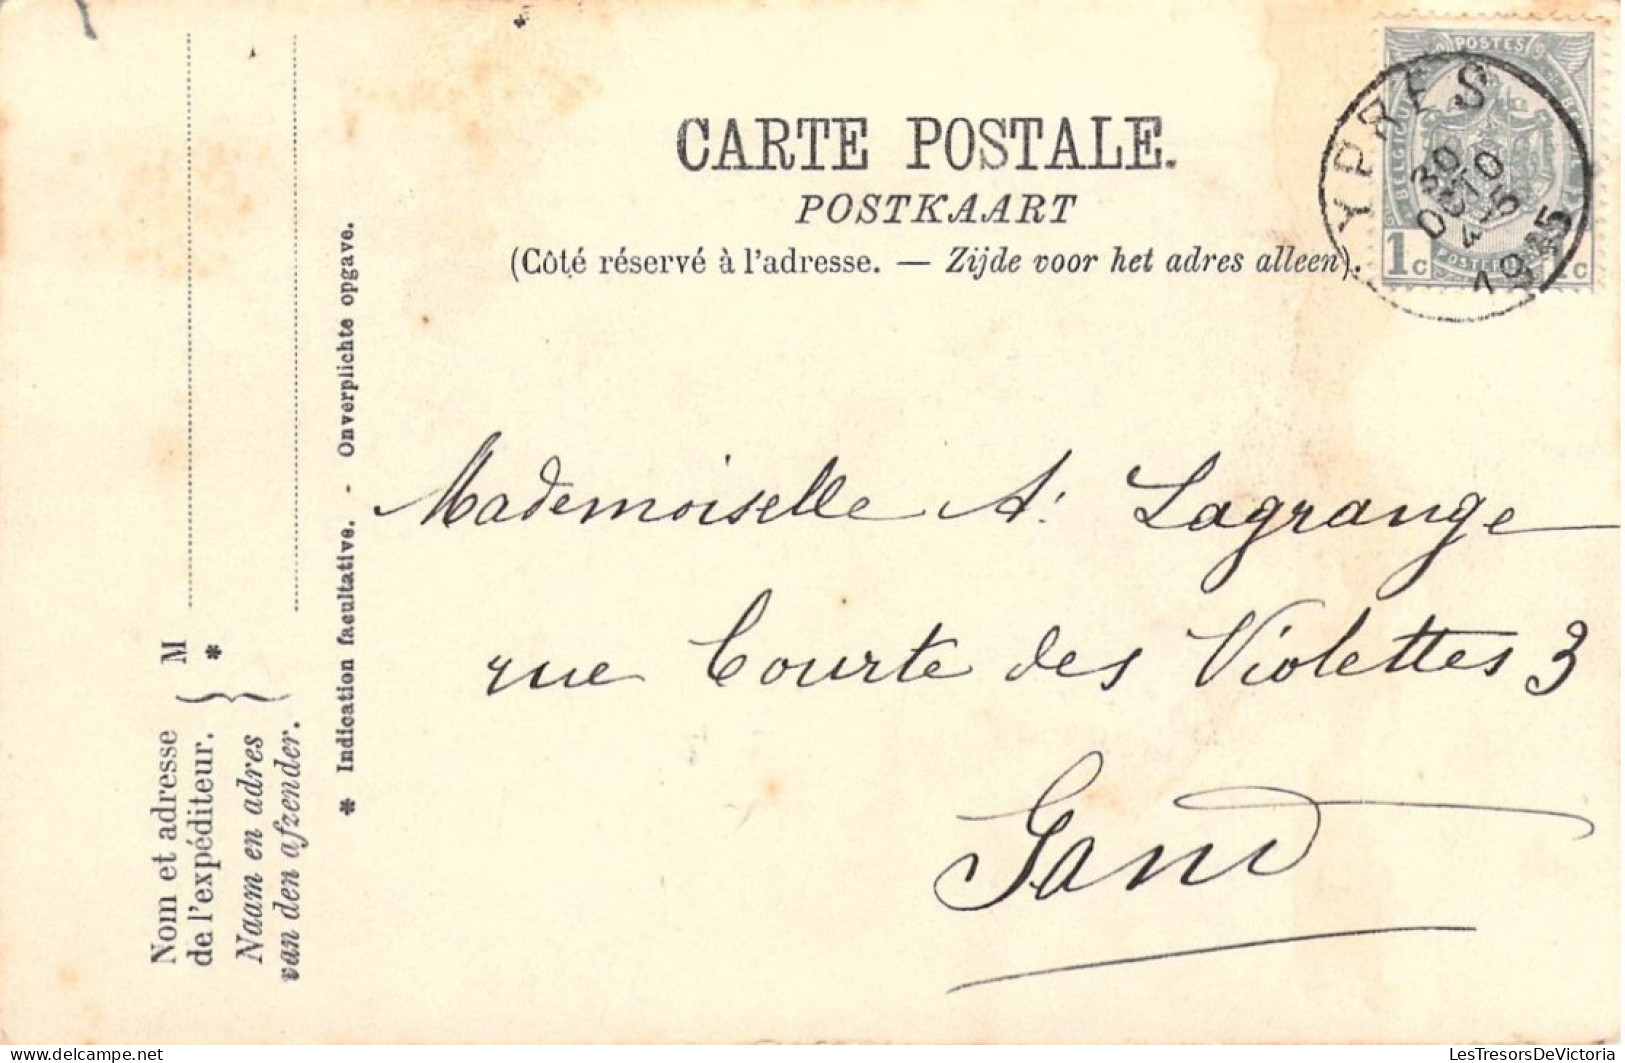 CARTE POSTALE.
POSTKAART
(Côté réservé à l'adresse. — Zijde voor het adres alleen).
POSTES
BELGIQUE
1c
YPRES
30
OCTO
Mademoiselle A. Lagrange
rue Courte des Violettes 3
Gand
M
*
Nom et adresse
de l'expéditeur.
Naam en adres
van den afzender.
* Indication facultative. - Onverplichte opgave.
LesTresorsDeVictoria